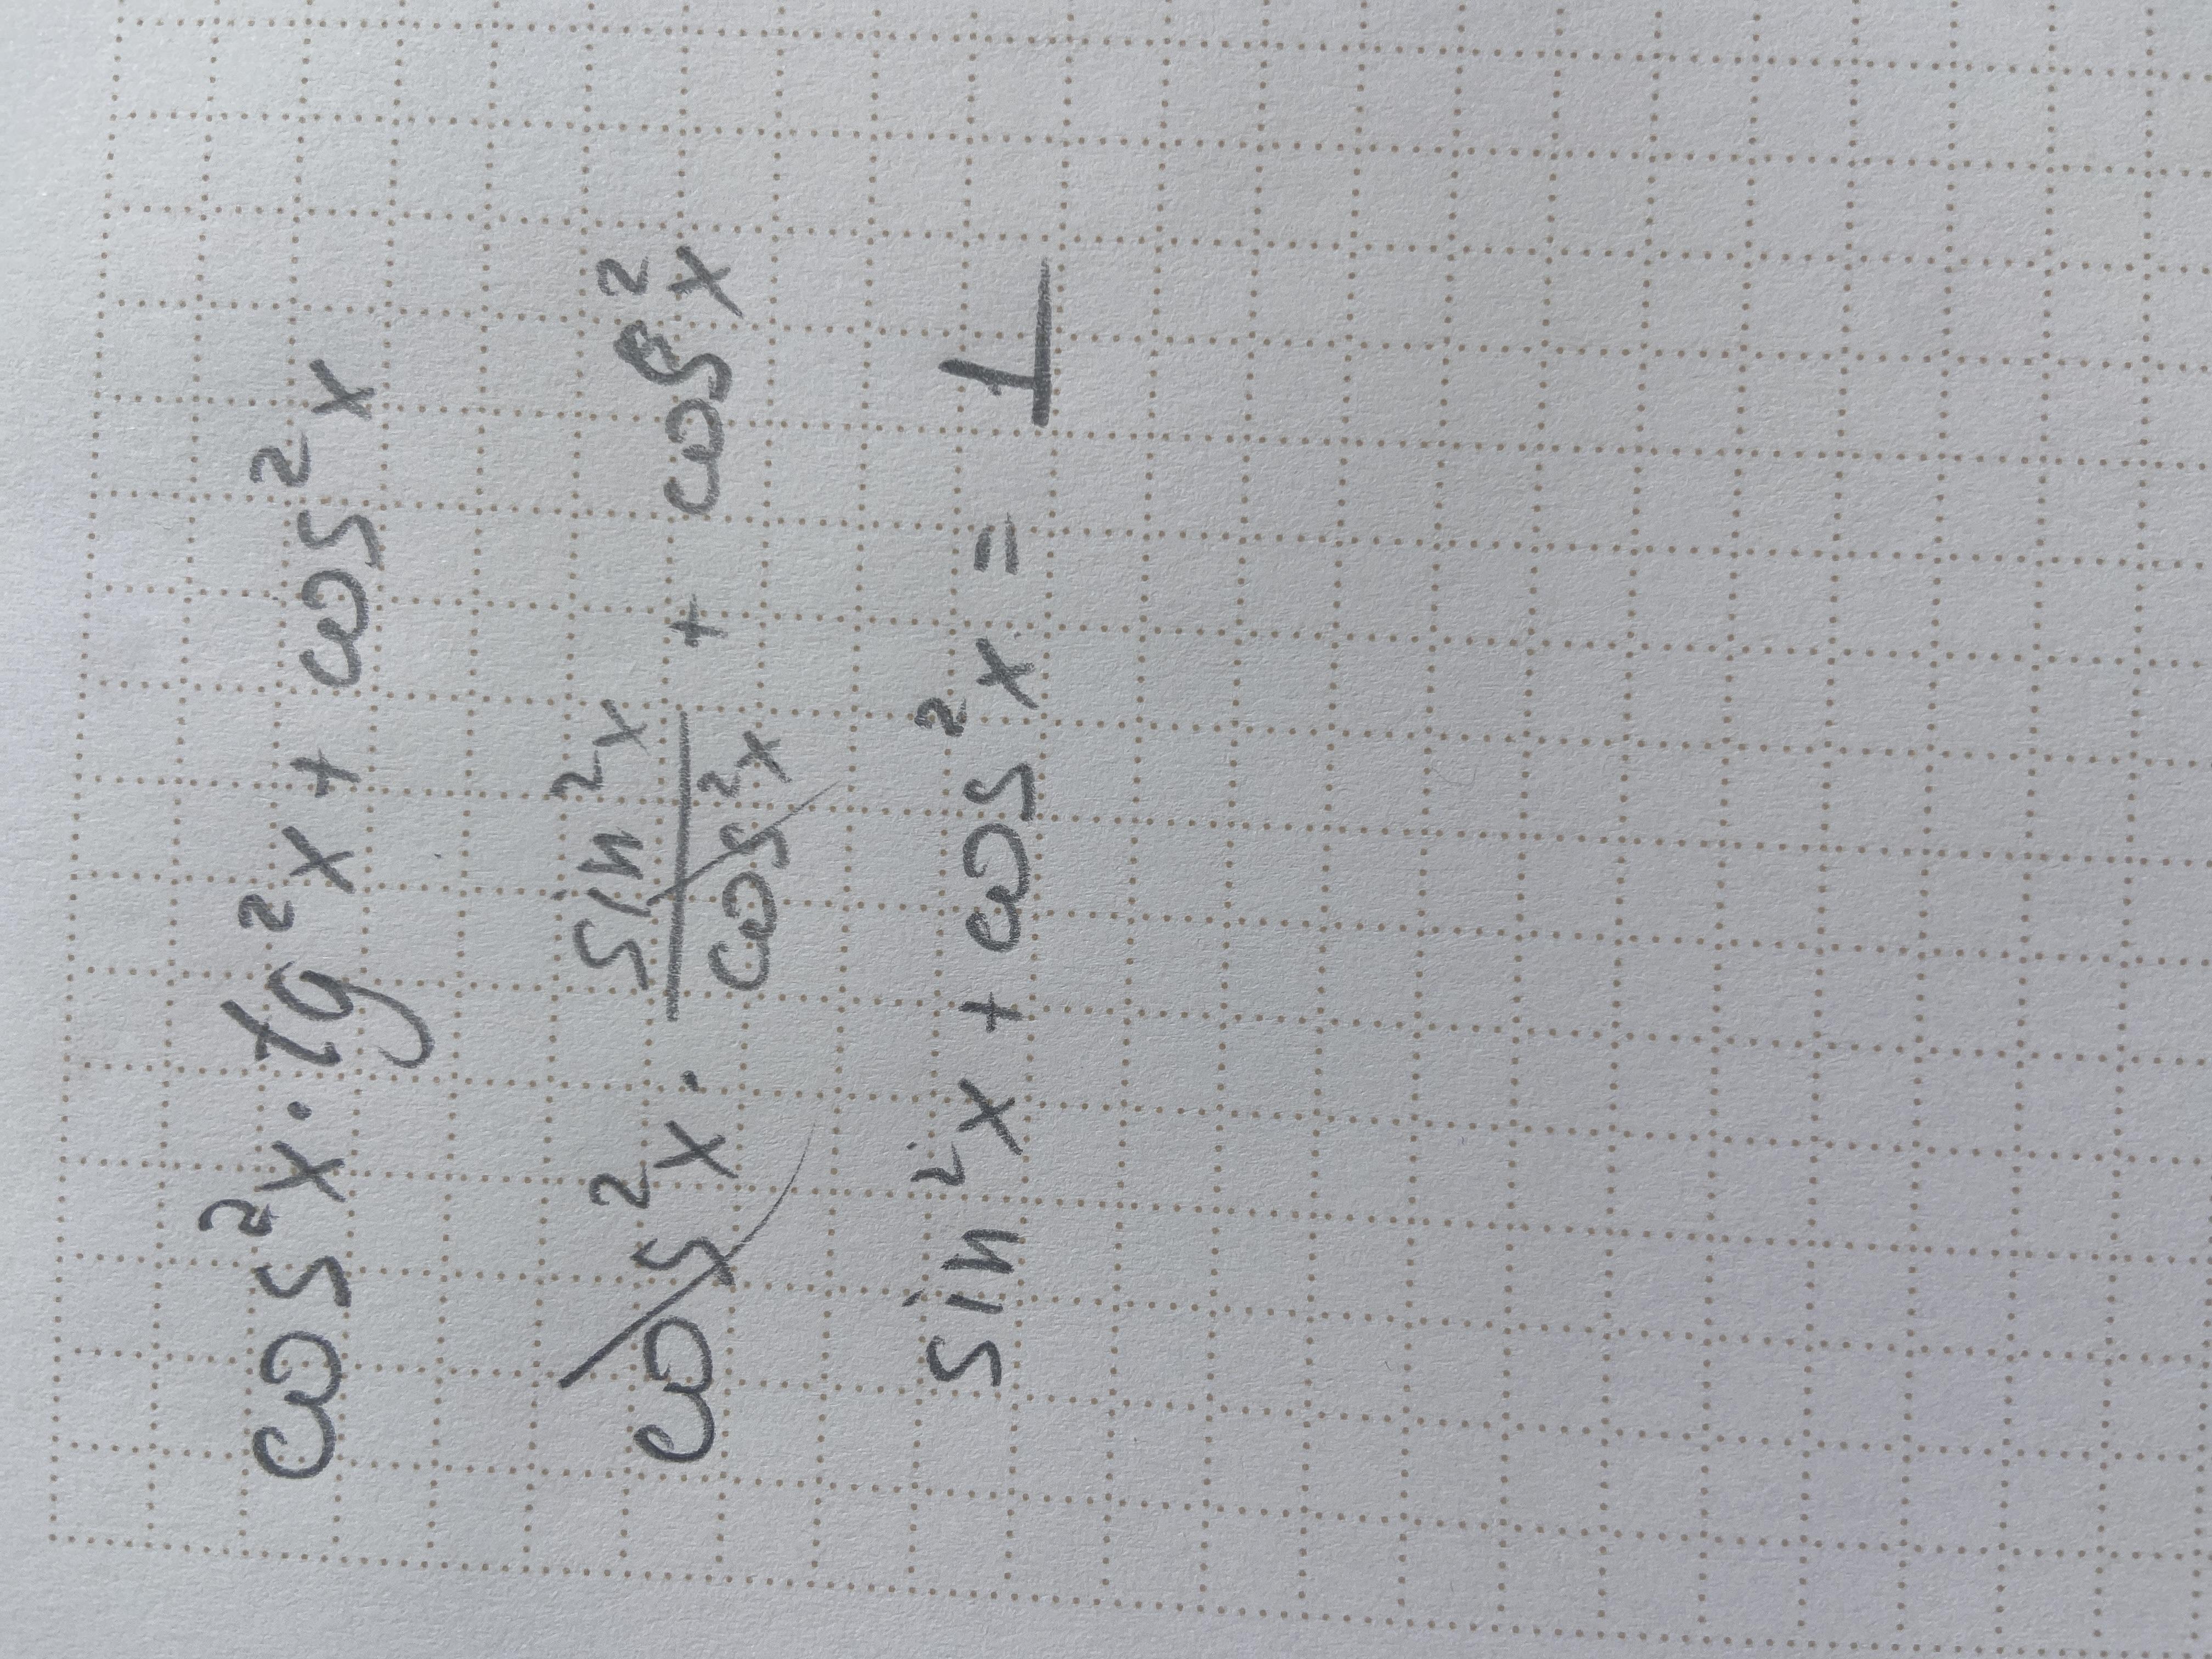 cos²x · tg²x + cos²x
cos²x · sin²x/cos²x + cos²x
sin²x + cos²x = 1